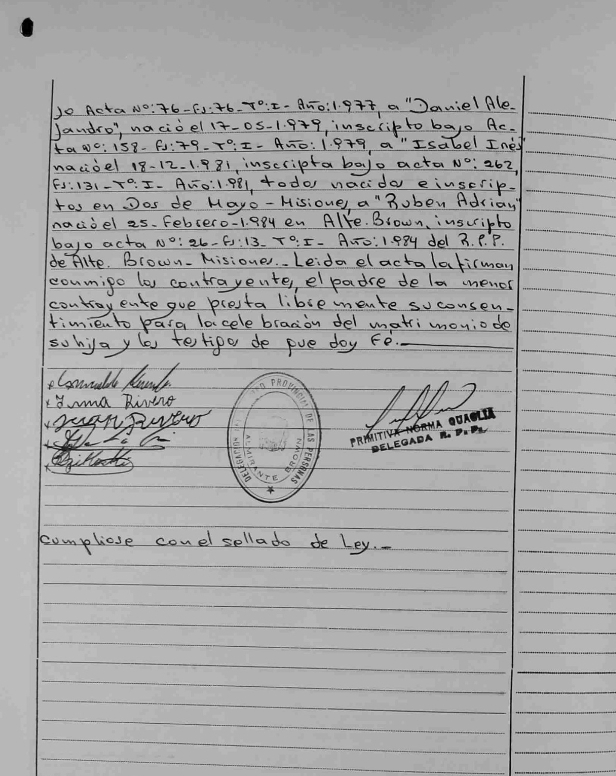 jo Acta Nº:76-FJ:76-Tº:I- Año:1.977, a "Daniel Ale-
jandro", nació el 17-05-1.979, inscripto bajo Ac-
ta Nº:158-FJ:79-Tº:I- Año: 1.979, a "Isabel Inés"
nació el 18-12-1.981, inscripta bajo acta Nº: 262,
FJ:131-Tº:I- Año:1.981, todos nacidos e inscrip-
tos en Dos de Mayo-Misiones, a "Ruben Adrian"
nació el 25-Febrero-1.984 en Alte. Brown, inscripto
bajo acta Nº:26-FJ:13-Tº:I- Año:1.984 del R.P.P.
de Alte. Brown-Misiones.- Leida el acta la firman
conmigo los contrayentes, el padre de la menor
contrayente que presta libremente su consen-
timiento para la celebración del matrimonio de
su hija y los testigos de que doy Fé.-
Irma Rivero
Juan Rivero
PROVINCIAL DE LAS PERSONAS
DELEGACION
ALMIRANTE BROWN
PRIMITIVA NORMA QUAGLIA
DELEGADA R. P. P.
cumpliose con el sellado de Ley.-